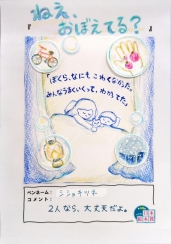 ねえ、
おぼえてる?
ぼくら、なにもこわくなかった。
みんなうまくいくって、わかってた。
ペンネーム:
コメント:
2人なら、大丈夫だよ。